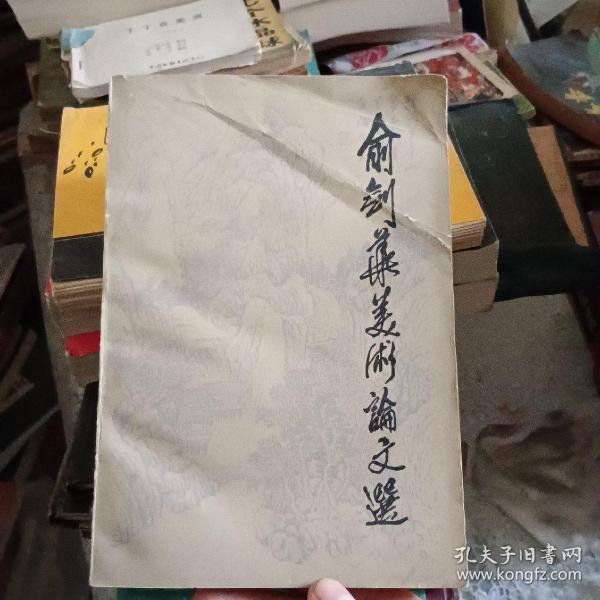 俞剑华美術論文選
丁丁在美洲
孔夫子旧书网
www.kongfz.com